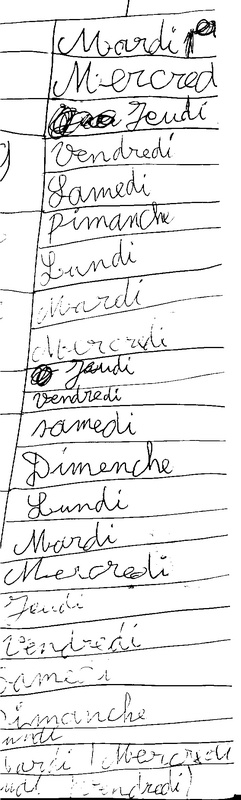 Mardi
Mercred
Jeudi
Vendredi
Samedi
Dimanche
Lundi
Mardi
Mercredi
Jeudi
vendredi
samedi
Dimenche
Lundi
Mardi
Mercredi
Jeudi
Vendredi
Samedi
Dimanche
undi
Mardi Mercredi
Vendredi